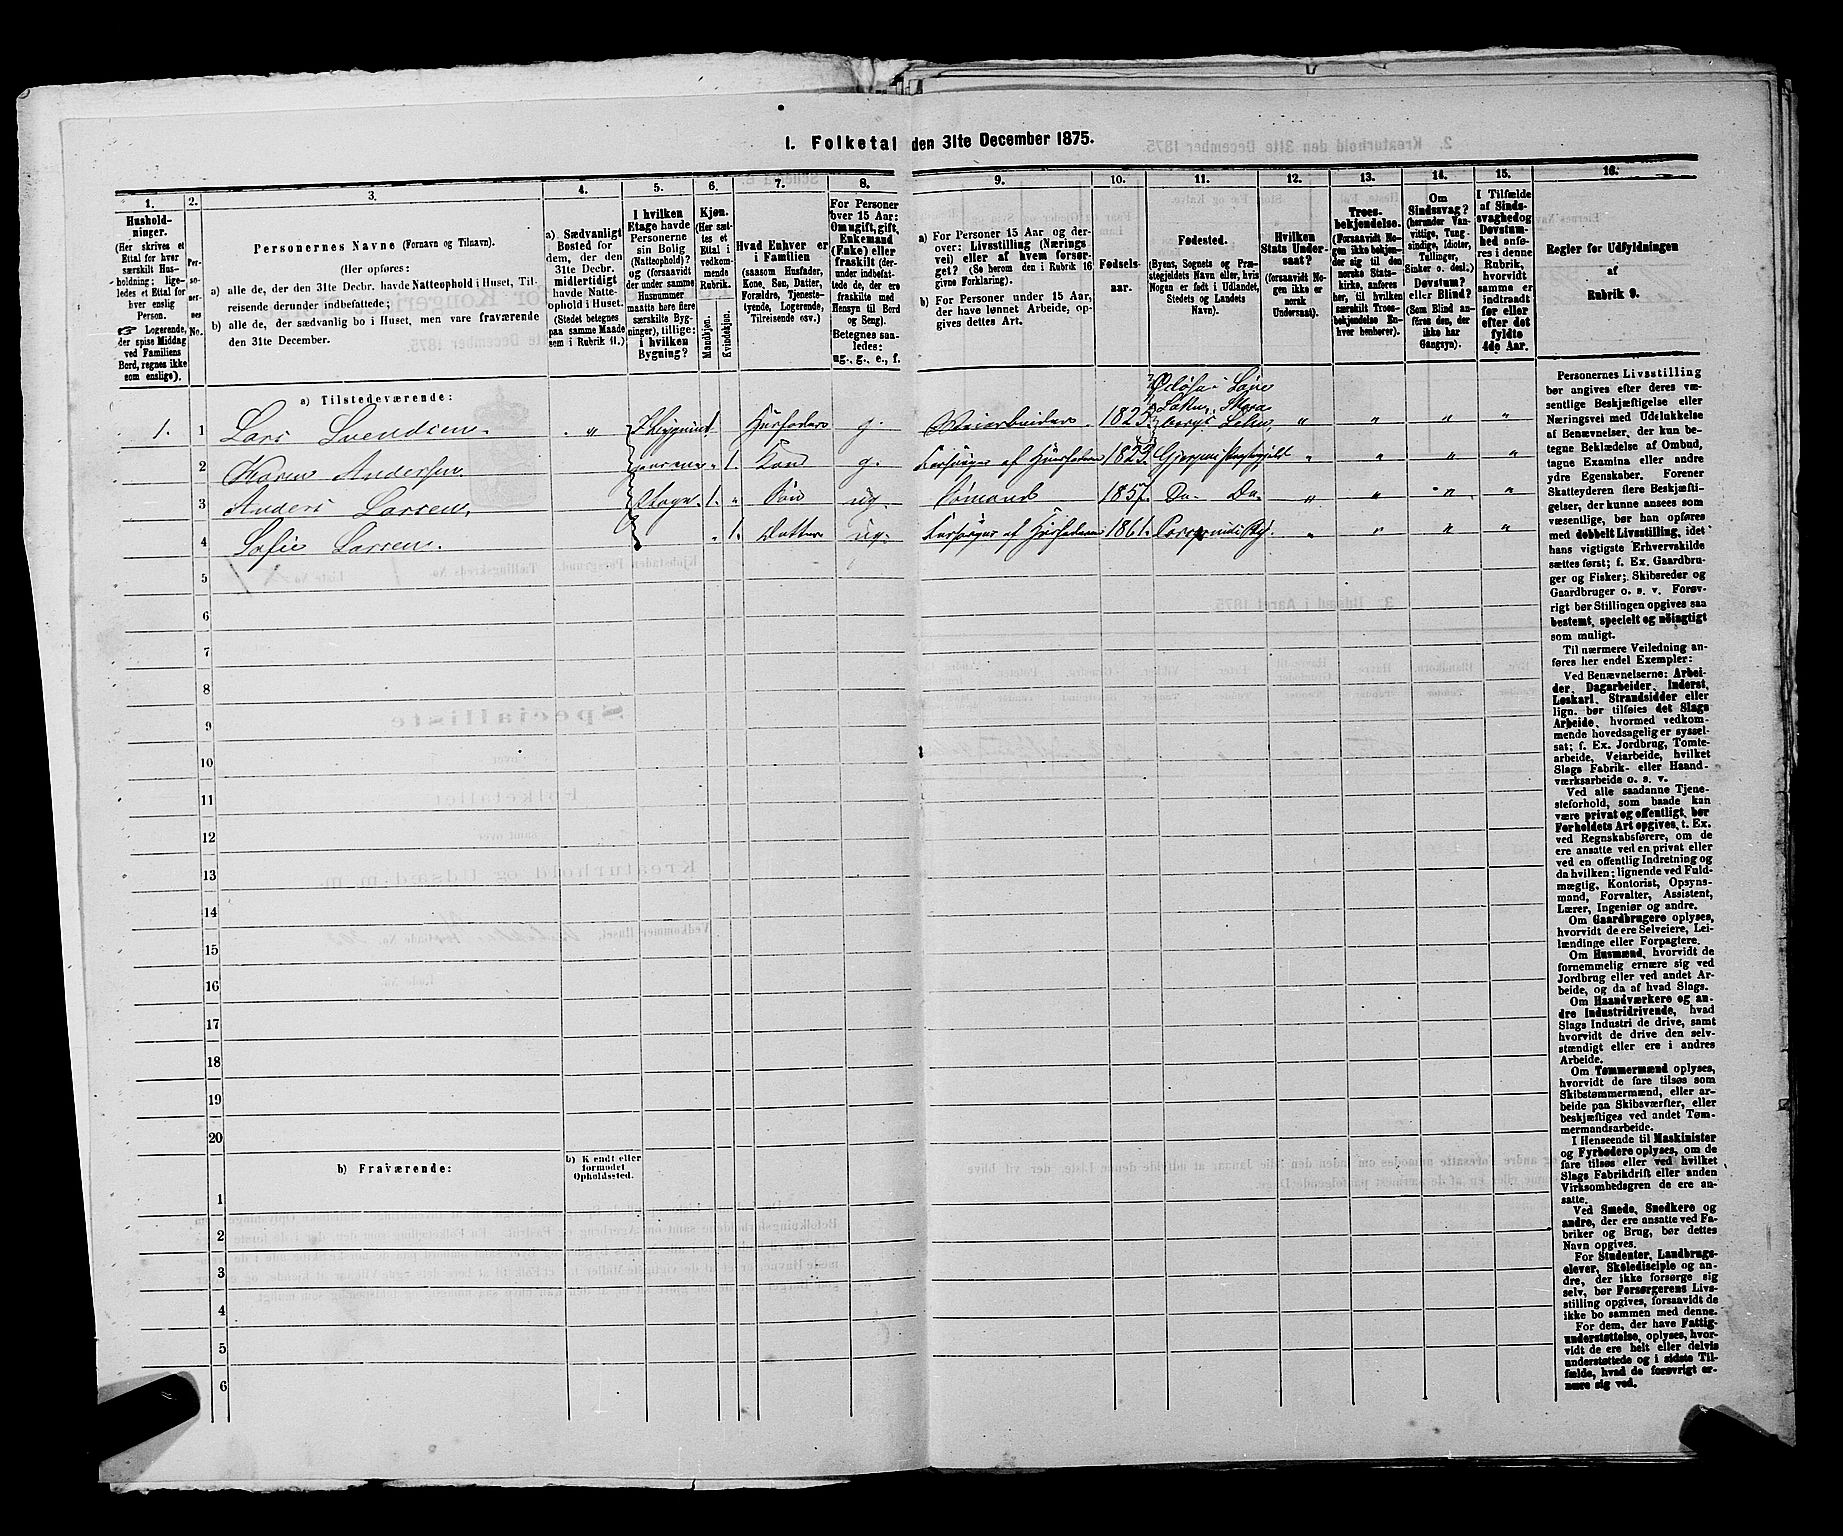 1. Folketal den 31te December 1875.
1.
Hushold-
ninger.
(Her skrives et
Ettal for hver
særskilt Hus-
holdning; lige-
ledes et Ettal for
hver enslig
Person.
Logerende,
der spise Middag
ved Familiens
Bord, regnes ikke
som enslige).
2.
Per-
so-
ner-
nes
No.
3.
Personernes Navne (Fornavn og Tilnavn).
(Her opføres:
a) alle de, der den 31te Decbr. havde Natteophold i Huset, Til-
reisende derunder indbefattede;
b) alle de, der sædvanlig bo i Huset, men vare fraværende
den 31te December.
4.
a). Sædvanligt
Bosted for
dem, der den
31te Decbr.
midlertidigt
havde Natte-
ophold i Huset.
(Stedet betegnes
paa samme Maade
som i Rubrik 11.)
5.
I hvilken
Etage havde
Personerne
sin Bolig
(Natteophold)?
og (forsaavidt
der under samme
Husnummer
maatte høre flere
særskilte Byg-
ninger), tillige:
i hvilken
Bygning?
6.
Kjøn.
(Her sæt-
tes et
Ettal i
vedkom-
mende
Rubrik.
Mandkjøn.
Kvindekjøn.
7.
Hvad Enhver er
i Familien
(saasom Husfader,
Kone, Søn, Datter,
Forældre, Tjeneste-
tyende, Logerende,
Tilreisende osv.)
8.
For Personer
over 15 Aar:
Om ugift, gift,
Enkemand
(Enke) eller
fraskilt (der-
under indbefat-
tede de, der ere
fraskilte med
Hensyn til Bord
og Seng).
Betegnes saa-
ledes:
ug., g., e., f.
9.
a) For Personer 15 Aar og der-
over: Livsstilling (Nærings-
vei) eller af hvem forsør-
get? (Se herom den i Rubrik 16
givne Forklaring).
b) For Personer under 15 Aar,
der have lønnet Arbeide, op-
gives dettes Art.
10.
Fødsels-
aar.
11.
Fødested.
(Byens, Sognets og Præ-
stegjeldets Navn eller, hvis
Nogen er født i Udlandet,
Stedets og Landets
Navn).
12.
Hvilken
Stats Under-
saat?
(forsaavidt No-
gen ikke er
norsk
Undersaat).
13.
Troes-
bekjendelse.
(Forsaavidt No-
gen ikke bekjen-
der sig til den
norske Stats-
kirke, anføres
her, til hvilken
særskilt Troes-
bekjendelse En-
hver henhører).
14.
Om
Sindssvag?
(herunder Van-
vittige, Tung-
sindige, Idioter,
Tullinger,
Sinker o. desl.)
Døvstum?
eller Blind?
(Som Blind an-
føres den, der
ikke har
Gangsyn).
15.
I Tilfælde
af Sinds-
svaghed og
Døvstum-
hed anfø-
res i denne
Rubrik,
hvorvidt
samme er
indtraadt
før eller
efter det
fyldte
4de Aar.
16.
Regler for Udfyldningen
af
Rubrik 9.
a) Tilstedeværende:
1. 1 Lars Svendsen. " Husfader g. Veiarbeider. 1823. " " " "
2 Karen Andersen " 1. Kone g. Forsørges af Husfaderen 1823. Gjerpens Præstegjeld " " " "
3 Anders Larsen, 1. " Søn ug. Sømand 1857. Do. Do. " " " "
4 Sofie Larsen. " 1. Datter ug. Forsørges af Husfaderen 1861. " " " "
5
6
7
8
9
10
11
12
13
14
15
16
17
18
19
20
b) Fraværende:
b) Kjendt eller
formodet
Opholdssted.
1
2
3
4
5
6
Personernes Livsstilling
bør angives efter deres væ-
sentlige Beskjæftigelse eller
Næringsvei med Udelukkelse
af Benævnelser, der kun be-
tegne Beklædelse af Ombud,
tagne Examina eller andre
ydre Egenskaber. Forener
Skatteyderen flere Beskjæfti-
gelser, der kunne ansees som
væsentlige, bør han opføres
med dobbelt Livsstilling, idet
hans vigtigste Erhvervskilde
sættes først; f. Ex. Gaardbru-
ger og Fisker; Skibsreder og
Gaardbruger o. s. v. Forøv-
rigt bør Stillingen opgives saa
bestemt, specielt og nöiagtigt
som muligt.
Til nærmere Veiledning an-
føres her endel Exempler:
Ved Benævnelserne: Arbei-
der, Dagarbeider, Inderst,
Løskarl, Strandsidder eller
lign. bør tilføies det Slags
Arbeide, hvormed vedkom-
mende hovedsagelig er syssel-
sat; f. Ex. Jordbrug, Tomte-
arbeide, Veiarbeide, hvilket
Slags Fabrik- eller Haand-
værksarbeide o. s. v.
Ved alle saadanne Tjene-
steforhold, som baade kan
være privat og offentligt, bør
Forholdets Art opgives, t. Ex.
ved Regnskabsførere, om de
ere ansatte ved en privat eller
ved en offentlig Indretning og
da hvilken; lignende ved Fuld-
mægtig, Kontorist, Opsyns-
mand, Forvalter, Assistent,
Lærer, Ingeniør og andre.
Om Gaardbrugere oplyses,
hvorvidt de ere Selveiere, Lei-
lændinge eller Forpagtere.
Om Husmænd, hvorvidt de
fornemmelig ernære sig ved
Jordbrug eller ved andet Ar-
beide, og da af hvad Slags.
Om Haandværkere og an-
dre Industridrivende, hvad
Slags Industri de drive, samt
hvorvidt de drive den selv-
stændigt eller ere i andres
Arbeide.
Om Tømmermænd oplyses,
hvorvidt de fare tilsøs som
Skibstømmermænd, eller ar-
beide paa Skibsværfter, eller
beskjæftiges ved andet Tøm-
mermandsarbeide.
I Henseende til Maskinister
og Fyrbødere oplyses, om de
fare tilsøs eller ved hvilket
Slags Fabrikdrift eller anden
Virksomhedsgren de ere an-
satte.
Ved Smede, Snedkere og
andre, der ere ansatte ved Fa-
briker og Brug, bør dettes
Navn opgives.
For Studenter, Landbrugs-
elever, Skoledisciple og an-
dre, der ikke forsørge sig
selv, bør Forsørgerens Livs-
stilling opgives, forsaavidt de
ikke bo sammen med denne.
For dem, der have Fattig-
understøttelse, oplyses, hvor-
vidt de ere helt eller delvis
understøttede og i sidste Til-
fælde, hvad de forøvrigt er-
nære sig ved.